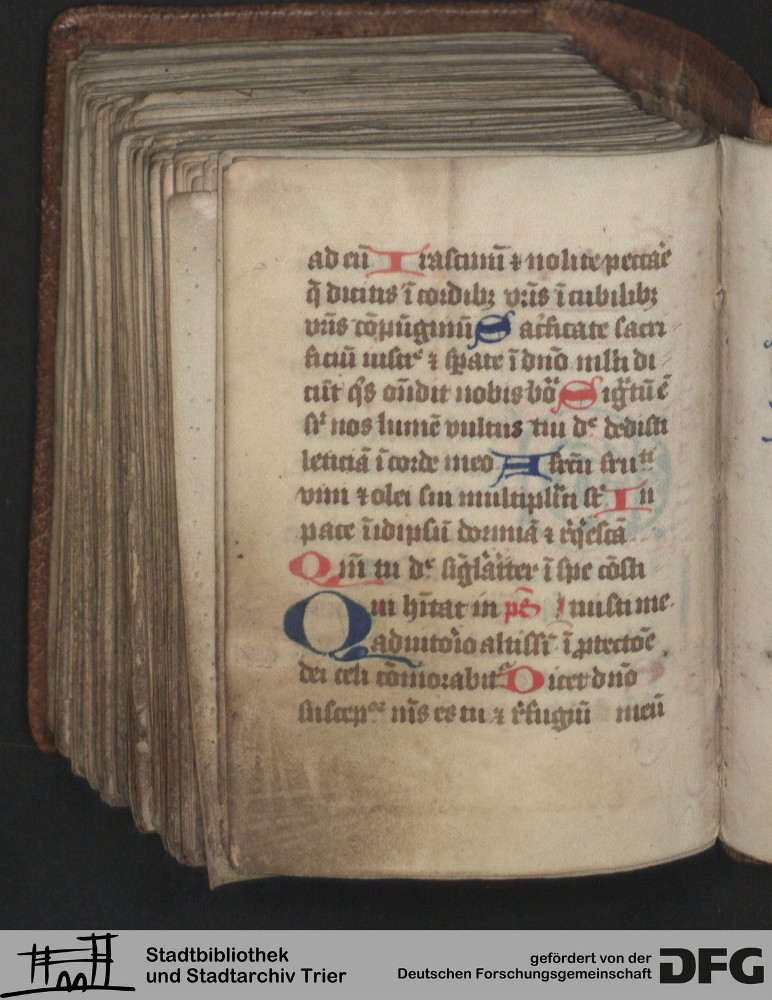 ad eū Irascimī ⁊ nolite peccaē
q̄ dicitis ī cordibꝫ vr̄is ī cubilibꝫ
vr̄is cōpūgimī Sac̄ficate sacri
ficiū iustic̄ ⁊ spate ī dn̄o ml̄ti di
cūt qͥs on̄dit nobis boͣ Sigͣtū ē
sr̄ nos lumē vultus tui dꝰ dedisti
leticiā ī corde meo A frc̄u fruᵗⁱ
vini ⁊ olei sui multiplc̄ti st̄ In
pace ī idipsū dormiā ⁊ rq̄escā
Qm̄ tu dꝰ siglāriter ī spe cōsti
Qui hītat in ps̄ Inuisti me
adiutoīo altissī ī ꝓtectōe
dei celi cōmorabit᷑ Dicet dn̄o
suscepᵒʳ m̄s es tu ⁊ r̄fugiū meū
Stadtbibliothek
und Stadtarchiv Trier
gefördert von der
Deutschen Forschungsgemeinschaft
DFG